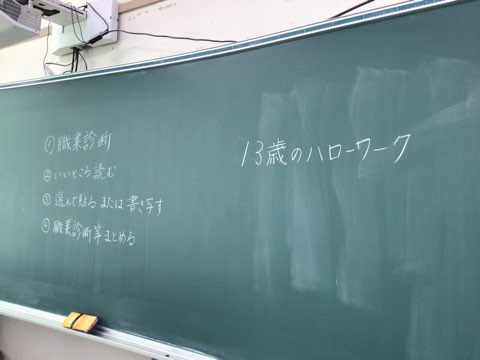 ①職業診断
②いいところ読む
③選んで貼るまたは書き写す
④職業診断等まとめる
13歳のハローワーク